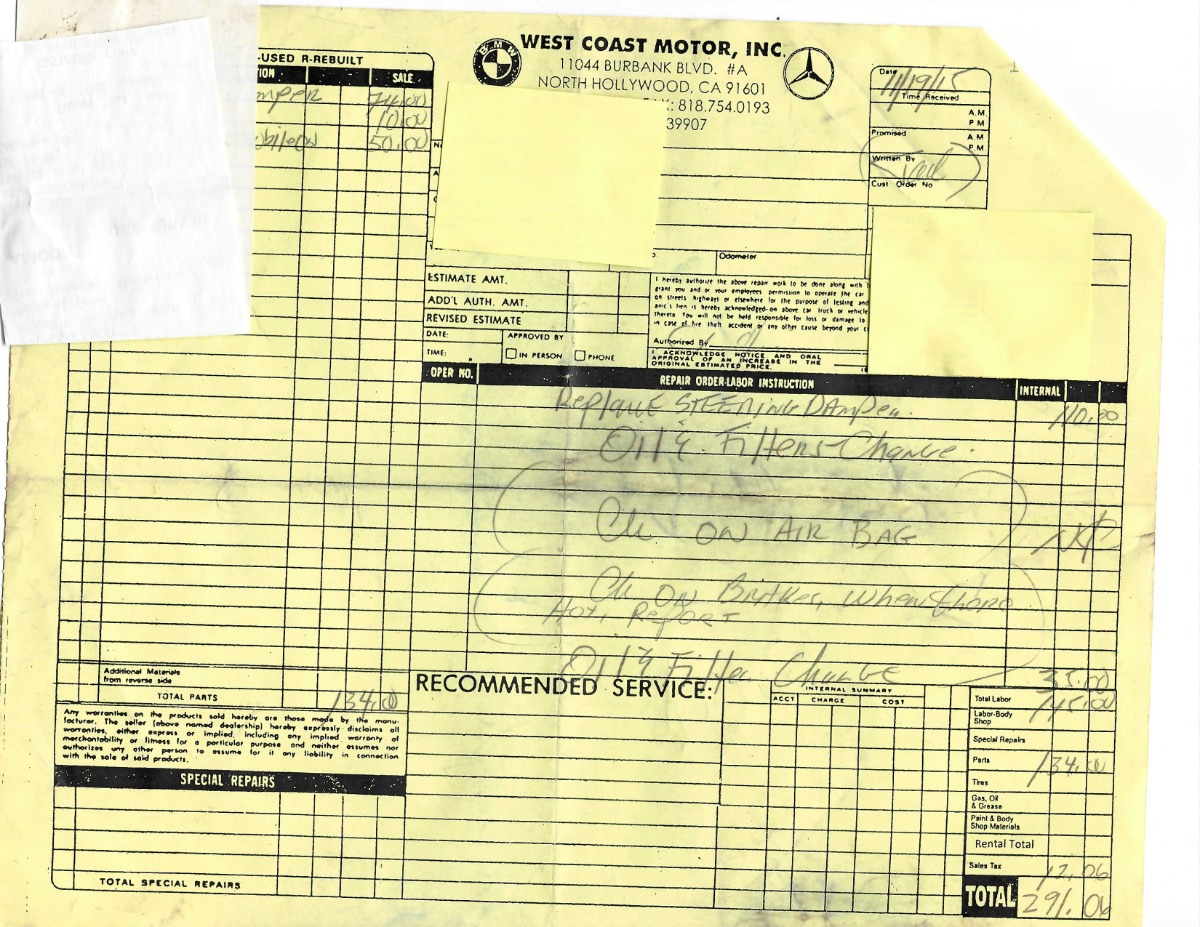 WEST COAST MOTOR, INC.
11044 BURBANK BLVD. #A
NORTH HOLLYWOOD, CA 91601
818.754.0193
39907
BMW
-USED R-REBUILT
ION
SALE
mper 74.00
10.00
50.00
Date 11/19/15
Time Received
A.M.
P M
Promised
A M
P M
Written By
Cust Order No
Odometer
ESTIMATE AMT.
ADD'L AUTH. AMT.
REVISED ESTIMATE
DATE:
APPROVED BY
TIME:
IN PERSON
PHONE
I hereby authorize the above repair work to be done along with
grant you and or your employees permission to operate the car
on streets highways or elsewhere for the purpose of testing and
anic's lien is hereby acknowledged on above car truck or vehicle
thereto You will not be held responsible for loss or damage to
in case of fire theft accident or any other cause beyond your c
Authorized By
I ACKNOWLEDGE NOTICE AND ORAL
APPROVAL OF AN INCREASE IN THE
ORIGINAL ESTIMATED PRICE.
OPER NO.
REPAIR ORDER-LABOR INSTRUCTION
INTERNAL
Replace STEERING DAmPer. 110.00
Oil & Filters Change.
Ck ON AIR BAG N/C
Ck ON Brakes, When
Hot, Report
Oil & Filter Change 35.00
Additional Materials
from reverse side
TOTAL PARTS 134.00
Any warranties on the products sold hereby are those made by the manu-
facturer. The seller (above named dealership) hereby expressly disclaims all
warranties, either express or implied, including any implied warranty of
merchantability or fitness for a particular purpose and neither assumes nor
authorizes any other person to assume for it any liability in connection
with the sale of said products.
SPECIAL REPAIRS
TOTAL SPECIAL REPAIRS
RECOMMENDED SERVICE:
INTERNAL SUMMARY
ACCT CHARGE COST
Total Labor 145.00
Labor-Body
Shop
Special Repairs
Parts 134.00
Tires
Gas, Oil
& Grease
Paint & Body
Shop Materials
Rental Total
Sales Tax 12.06
TOTAL 291.06